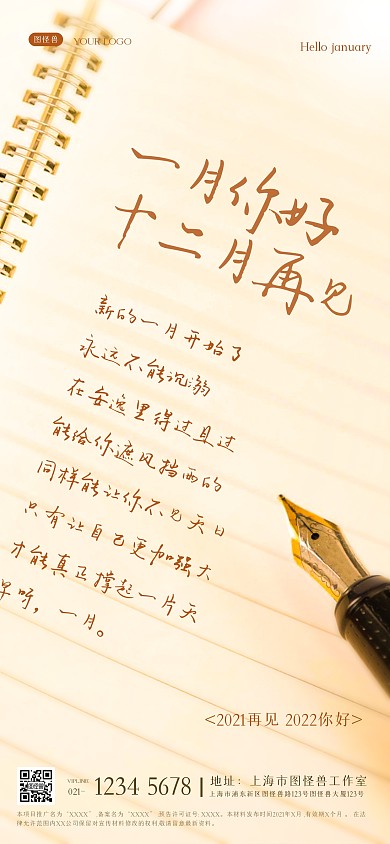 图怪兽 YOUR LOGO
Hello january
一月你好
十二月再见
新的一月开始了
永远不能沉溺
在安逸里得过且过
能给你遮风挡雨的
同样能让你不见天日
只有让自己更加强大
才能真正撑起一片天
早呀，一月。
<2021再见 2022你好>
VIPLINK
021- 1234 5678
地址：上海市图怪兽工作室
上海市浦东新区图怪兽路123号图怪兽大厦123号
本项目推广名为“XXXX”,备案名为“XXXX”,预告许可证号:XXXX。本材料发布时间2021年X月,有效期X个月 。 在法
律允许范围内XX公司保留对宣传材料修改的权利,敬请留意最新资料。